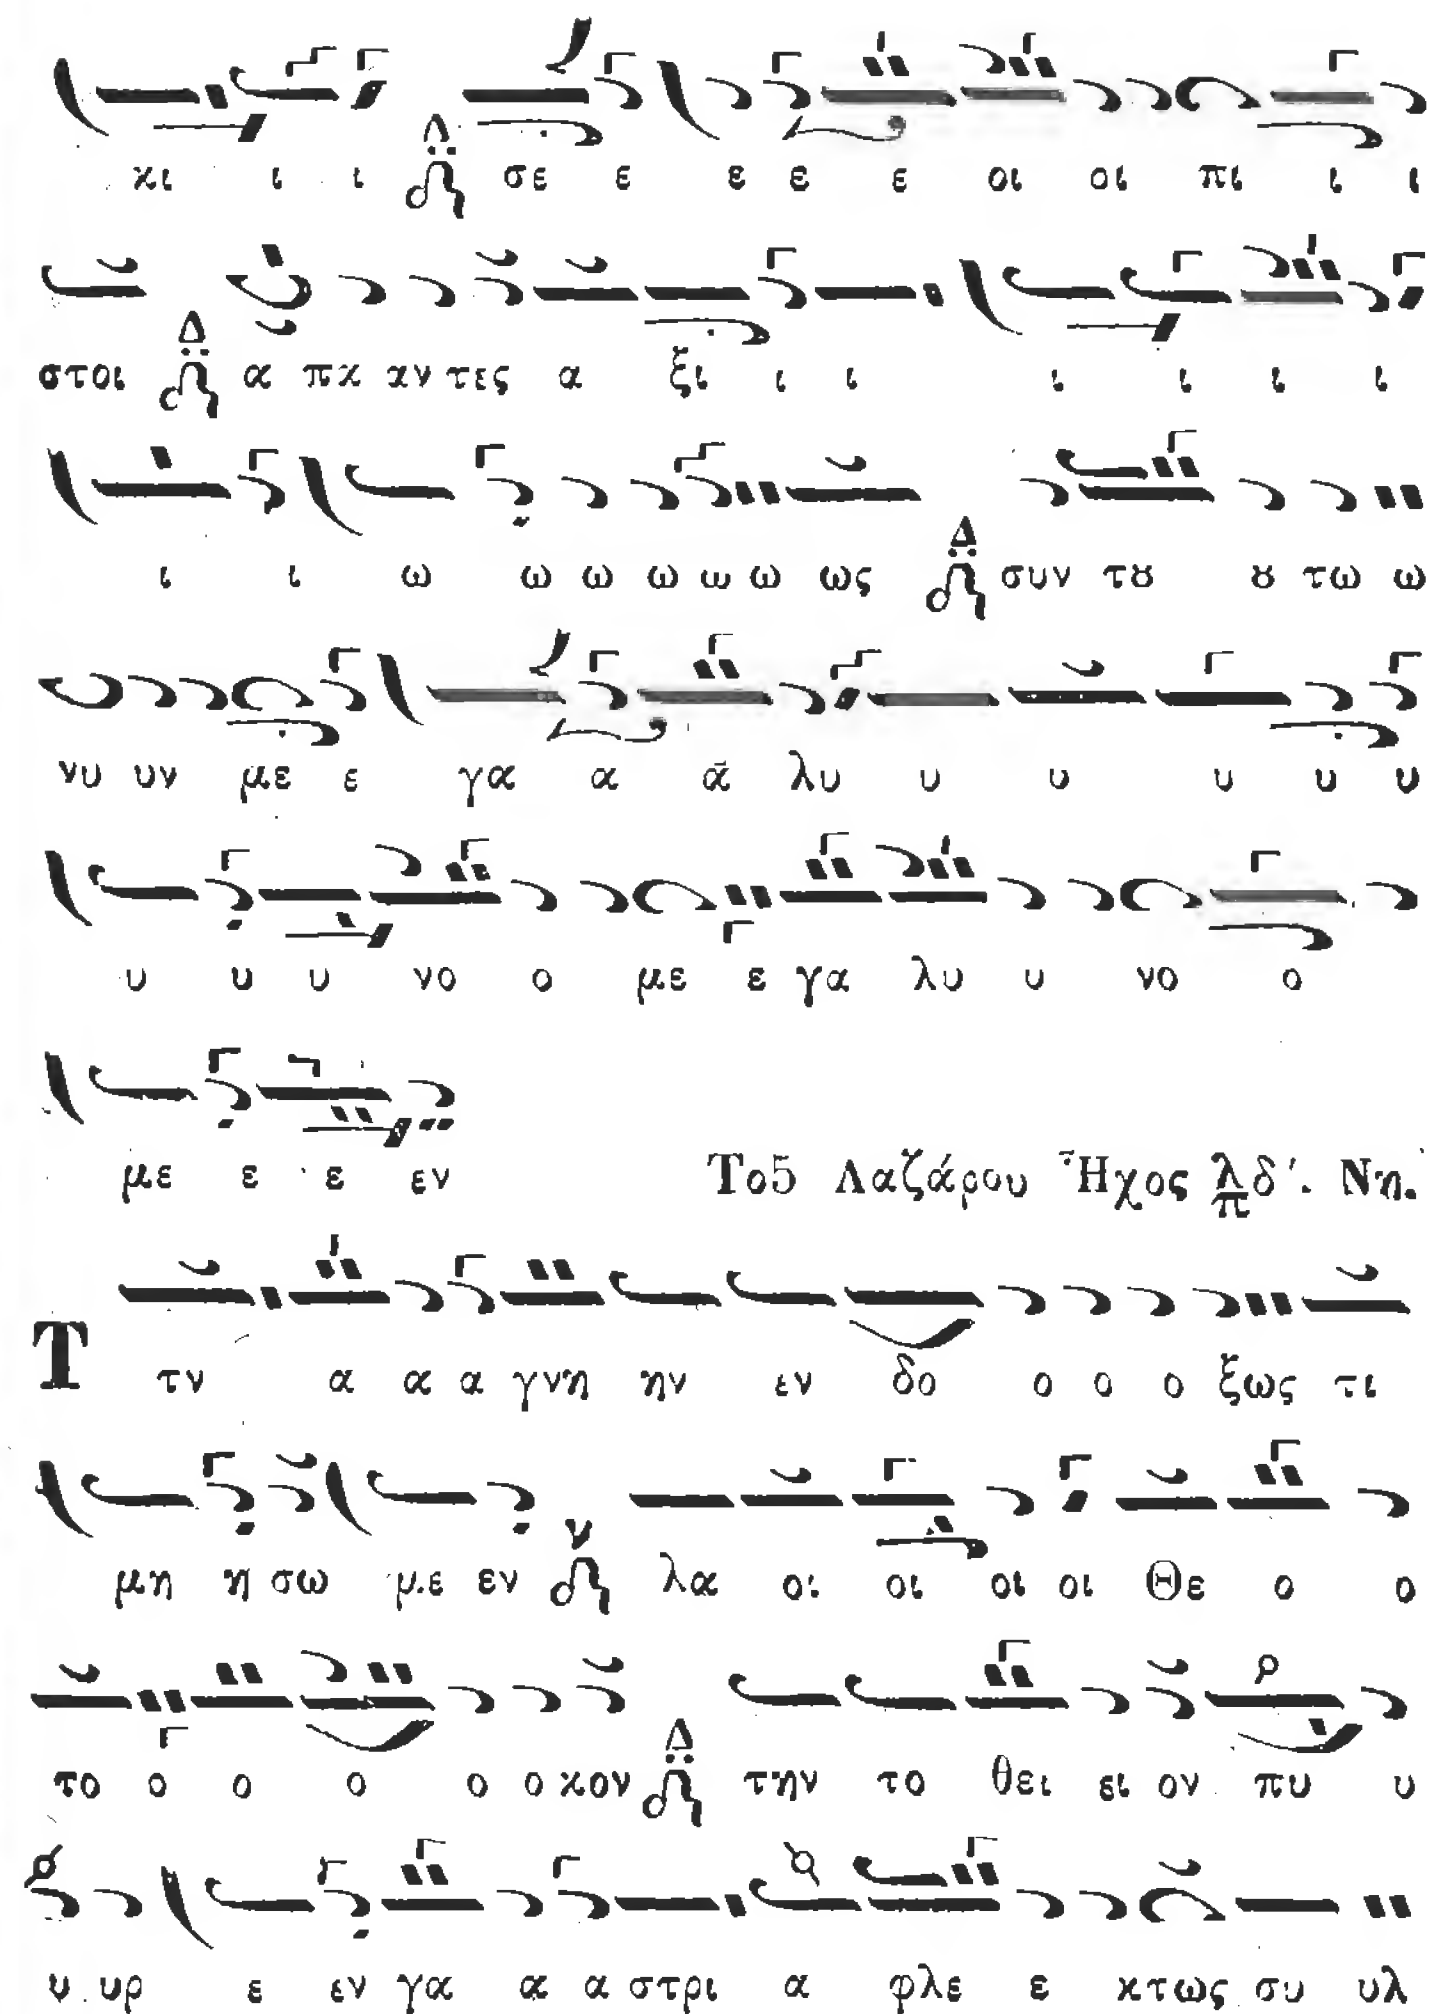 κι ι ι Δ σε ε ε ε ε οι οι πι ι ι
στοι Δ α πα αν τες α ξι ι ι ι ι ι ι
ι ι ω ω ω ω ω ω ως Δ συν τȣ ȣ τω ω
νυ υν με ε γα α α λυ υ υ υ υ υ
υ υ υ νο ο με ε γα λυ υ νο ο
με ε ε εν
Το5 Λαζάρου Ἦχος λ/π δ΄. Νη.
Τ τν α α α γνη ην εν δο ο ο ο ξως τι
μη η σω με εν ν λα οι οι οι οι Θε ο ο
το ο ο ο ο ο κον Δ την το θει ει ον πυ υ
υ υρ ε εν γα α α στρι α φλε ε κτως συ υλ